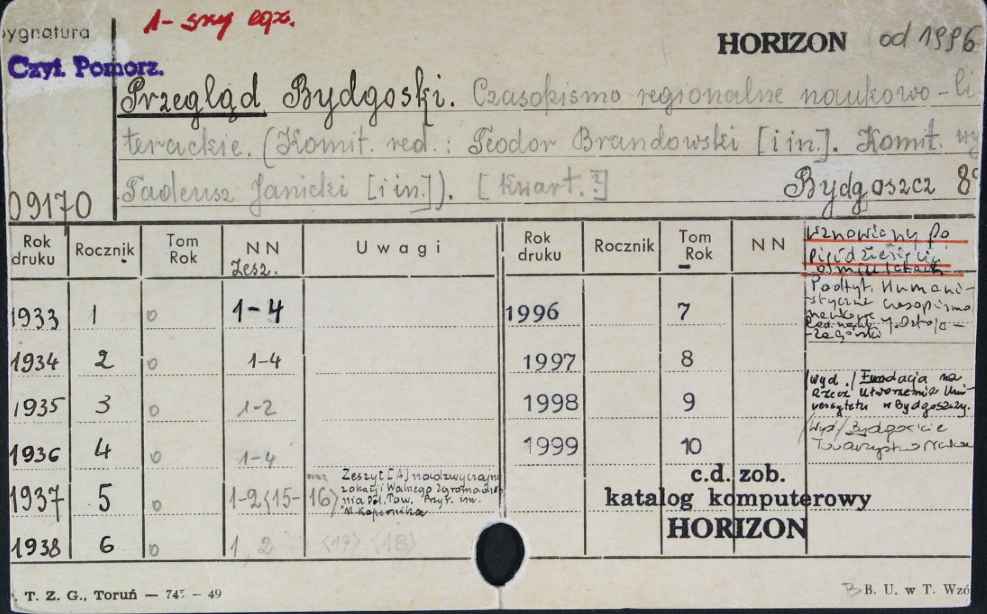 1-szy egz.
ygnatura
HORIZON od 1996
Czyt. Pomorz.
Przegląd Bydgoski. Czasopismo regionalne naukowo-li
terackie. (Komit. red.: Teodor Brandowski [i in.]. Komit. wy
Tadeusz Janicki [i in.]). [Kwart.]
Bydgoszcz 8°
09170
Rok druku Rocznik Tom Rok NN Zesz. Uwagi Rok druku Rocznik Tom Rok NN
Wznowiony po
pięćdziesięciu
ośmiu latach
Podtyt. Humani-
styczne czasopismo
naukowe
1933 1 0 1-4 1996 7
1934 2 0 1-4 1997 8
1935 3 0 1-2 1998 9
Wyd./Fundacja na
rzecz utworzenia Uni-
wersytetu w Bydgoszczy.
1936 4 0 1-4 1999 10
Wyd/Bydgoskie
Towarzystwo Nauko
1937 5 0 1-2 (15-16)
Zeszyt [4] nadzwyczajn
z okazji Walnego Zgromadze
nia Pol. Tow. Przyr. im.
M. Kopernika
c.d. zob.
katalog komputerowy
HORIZON
1938 6 0 1 2 (17) (18)
T. Z. G., Toruń — 745 — 49
B. U. w T. Wzó